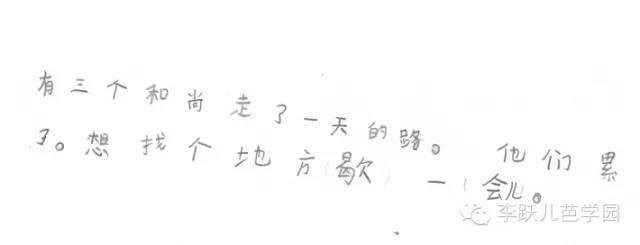 有三个和尚走了一天的路。 他们累
了。想找个地方(歇) 一(会儿。
李跃儿芭学园